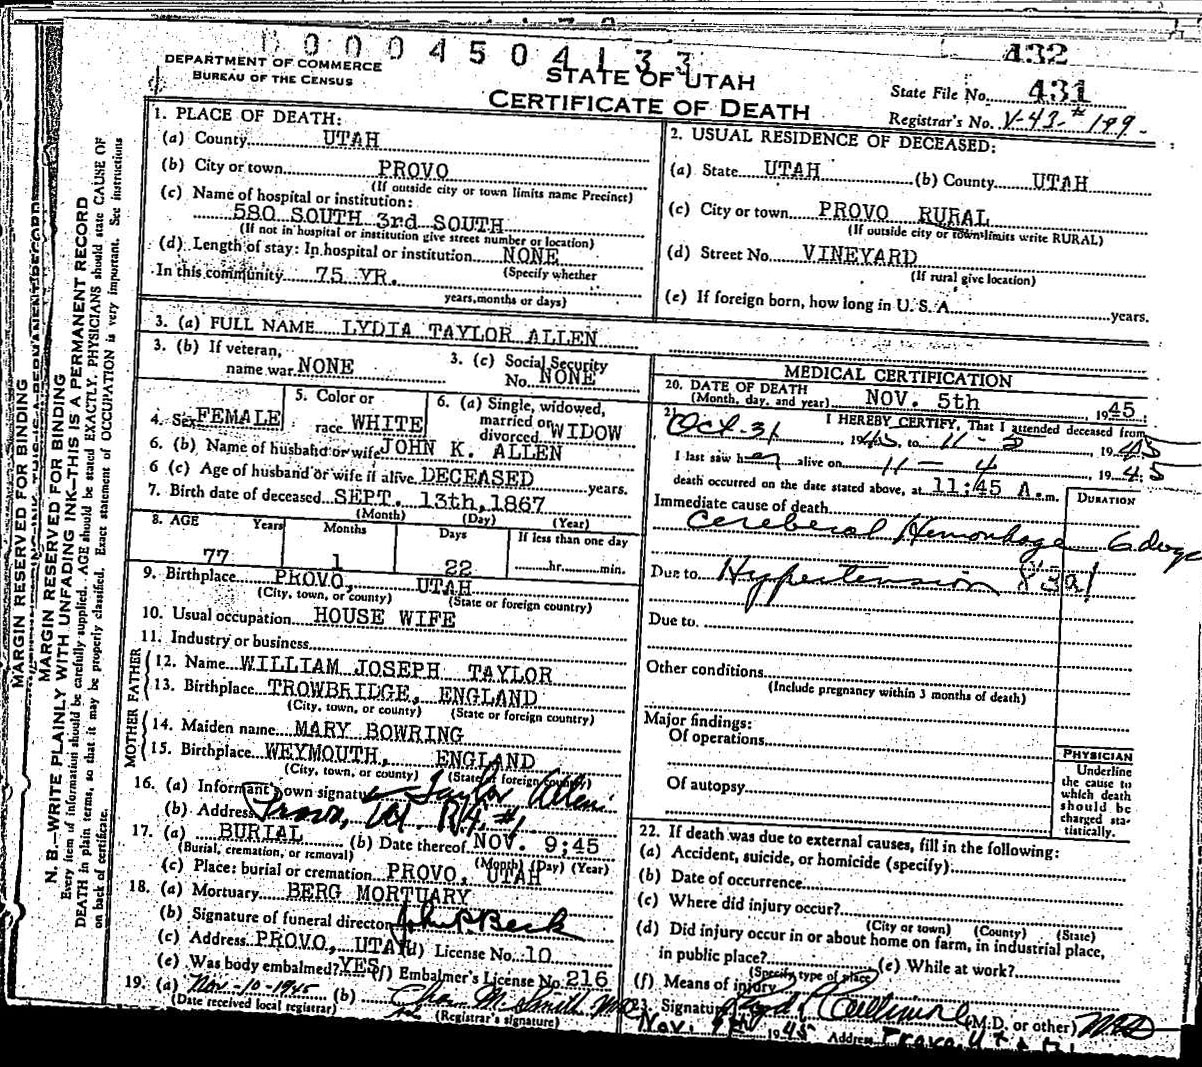 D 0 0 0 4 5 0 4 1 3 3
432
DEPARTMENT OF COMMERCE
BUREAU OF THE CENSUS
STATE OF UTAH
CERTIFICATE OF DEATH
State File No. 431
Registrar's No. V-43-#199-
1. PLACE OF DEATH:
(a) County UTAH
(b) City or town PROVO
(If outside city or town limits name Precinct)
(c) Name of hospital or institution:
580 SOUTH 3rd SOUTH
(If not in hospital or institution give street number or location)
(d) Length of stay: In hospital or institution NONE
(Specify whether
In this community 75 YR.
years, months or days)
2. USUAL RESIDENCE OF DECEASED:
(a) State UTAH (b) County UTAH
(c) City or town PROVO RURAL
(If outside city or town limits write RURAL)
(d) Street No. VINEYARD
(If rural give location)
(e) If foreign born, how long in U. S. A. years.
3. (a) FULL NAME LYDIA TAYLOR ALLEN
3. (b) If veteran,
name war NONE
3. (c) Social Security
No. NONE
4. Sex FEMALE
5. Color or
race WHITE
6. (a) Single, widowed,
married or
divorced WIDOW
6. (b) Name of husband or wife JOHN K. ALLEN
6 (c) Age of husband or wife if alive DECEASED years.
7. Birth date of deceased SEPT. 13th, 1867
(Month) (Day) (Year)
8. AGE Years Months Days If less than one day
77 1 22 hr. min.
9. Birthplace PROVO, UTAH
(City, town, or county) (State or foreign country)
10. Usual occupation HOUSE WIFE
11. Industry or business
FATHER
12. Name WILLIAM JOSEPH TAYLOR
13. Birthplace TROWBRIDGE, ENGLAND
(City, town, or county) (State or foreign country)
MOTHER
14. Maiden name MARY BOWRING
15. Birthplace WEYMOUTH, ENGLAND
(City, town, or county) (State or foreign country)
16. (a) Informant's own signature Taylor Allen
(b) Address Provo, Ut. R# #1
17. (a) BURIAL (b) Date thereof NOV. 9;45
(Burial, cremation, or removal) (Month) (Day) (Year)
(c) Place: burial or cremation PROVO, UTAH
18. (a) Mortuary BERG MORTUARY
(b) Signature of funeral director
(c) Address PROVO, UTAH (d) License No. 10
(e) Was body embalmed? YES (f) Embalmer's License No. 216
19. (a) Nov-10-1945 (b)
(Date received local registrar) (Registrar's signature)
MEDICAL CERTIFICATION
20. DATE OF DEATH
(Month, day, and year) NOV. 5th, 1945
21. I HEREBY CERTIFY, That I attended deceased from
Oct-31 1945, to 11-5, 1945
I last saw her alive on 11-4 1945
death occurred on the date stated above, at 11:45 A.m.
DURATION
Immediate cause of death
Cereberal Hemorrhage 6 days
Due to Hypertension
Due to
Other conditions
(Include pregnancy within 3 months of death)
Major findings:
Of operations
Of autopsy
PHYSICIAN
Underline
the cause to
which death
should be
charged sta-
tistically.
22. If death was due to external causes, fill in the following:
(a) Accident, suicide, or homicide (specify)
(b) Date of occurrence
(c) Where did injury occur?
(City or town) (County) (State)
(d) Did injury occur in or about home on farm, in industrial place,
in public place?
(Specify type of place) (e) While at work?
(f) Means of injury
23. Signature (M.D. or other) MD
Nov. 9th 1945 Address Provo Utah
MARGIN RESERVED FOR BINDING
MARGIN RESERVED FOR BINDING
N. B.—WRITE PLAINLY WITH UNFADING INK—THIS IS A PERMANENT RECORD
Every item of information should be carefully supplied. AGE should be stated EXACTLY. PHYSICIANS should state CAUSE OF
DEATH in plain terms, so that it may be properly classified. Exact statement of OCCUPATION is very important. See instructions
on back of certificate.